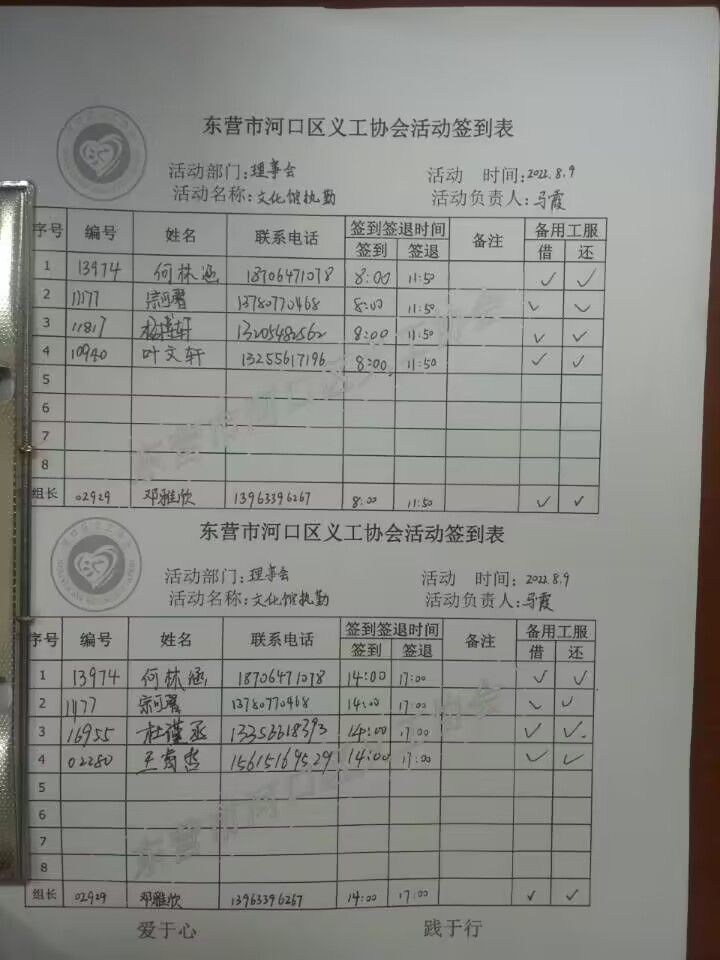 东营市河口区义工协会活动签到表
活动部门:理事会 活动 时间:2022.8.9
活动名称:文化馆执勤 活动负责人:马霞
序号 编号 姓名 联系电话 签到签退时间 备注 备用工服
签到 签退 借 还
1 13974 何林涵 18706471078 8:00 11:50 ✓ ✓
2 11177 宗可馨 13780770468 8:00 11:50 ✓ ✓
3 11817 轩 13205482562 8:00 11:50 ✓ ✓
4 10940 叶文轩 13255617196 8:00 11:50 ✓ ✓
5
6
7
8
组长 02929 邓雅欣 13963396267 8:00 11:50 ✓ ✓
东营市河口区义工协会
东营市河口区义工协会活动签到表
活动部门:理事会 活动 时间:2022.8.9
活动名称:文化馆执勤 活动负责人:马霞
序号 编号 姓名 联系电话 签到签退时间 备注 备用工服
签到 签退 借 还
1 13974 何林涵 18706471078 14:00 17:00 ✓ ✓
2 11177 宗可馨 13780770468 14:00 17:00 ✓ ✓
3 16955 杜谨丞 13356618393 14:00 17:00 ✓ ✓
4 02280 王奇哲 15615169529 14:00 17:00 ✓ ✓
5
6
7
8
组长 02929 邓雅欣 13963396267 14:00 17:00 ✓ ✓
东营市河口区义工协会
爱于心 践于行